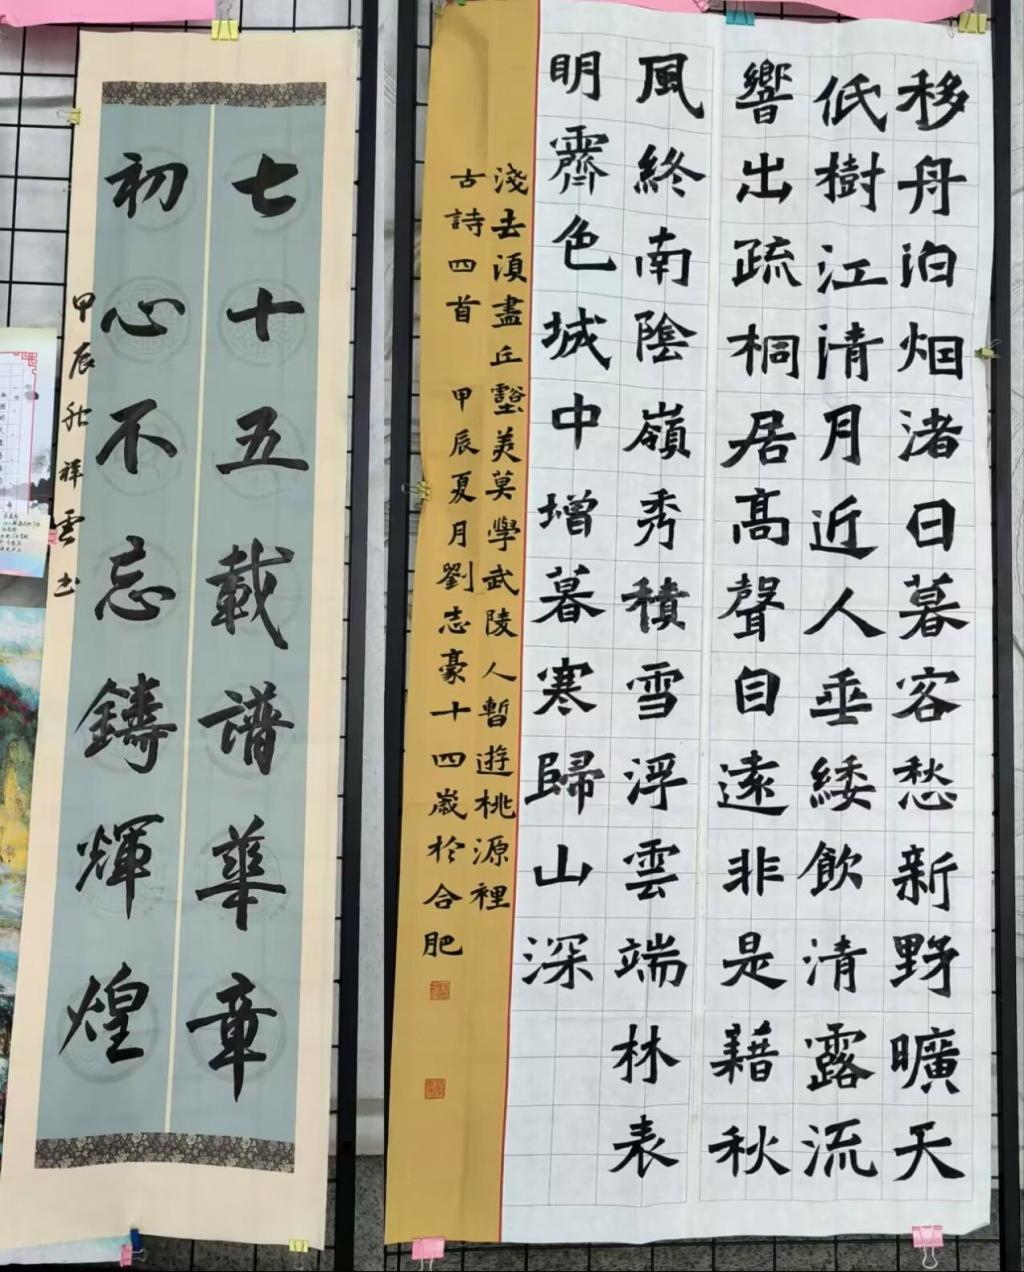 移舟泊烟渚日暮客愁新野曠天
低樹江清月近人垂緌飲清露流
響出疏桐居高聲自遠非是藉秋
風終南陰嶺秀積雪浮雲端林表
明霽色城中增暮寒歸山深
淺去須盡丘壑美莫學武陵人暫遊桃源裡
古詩四首 甲辰夏月劉志豪十四歲於合肥
七十五載譜華章
初心不忘鑄輝煌
甲辰秋祥雲书